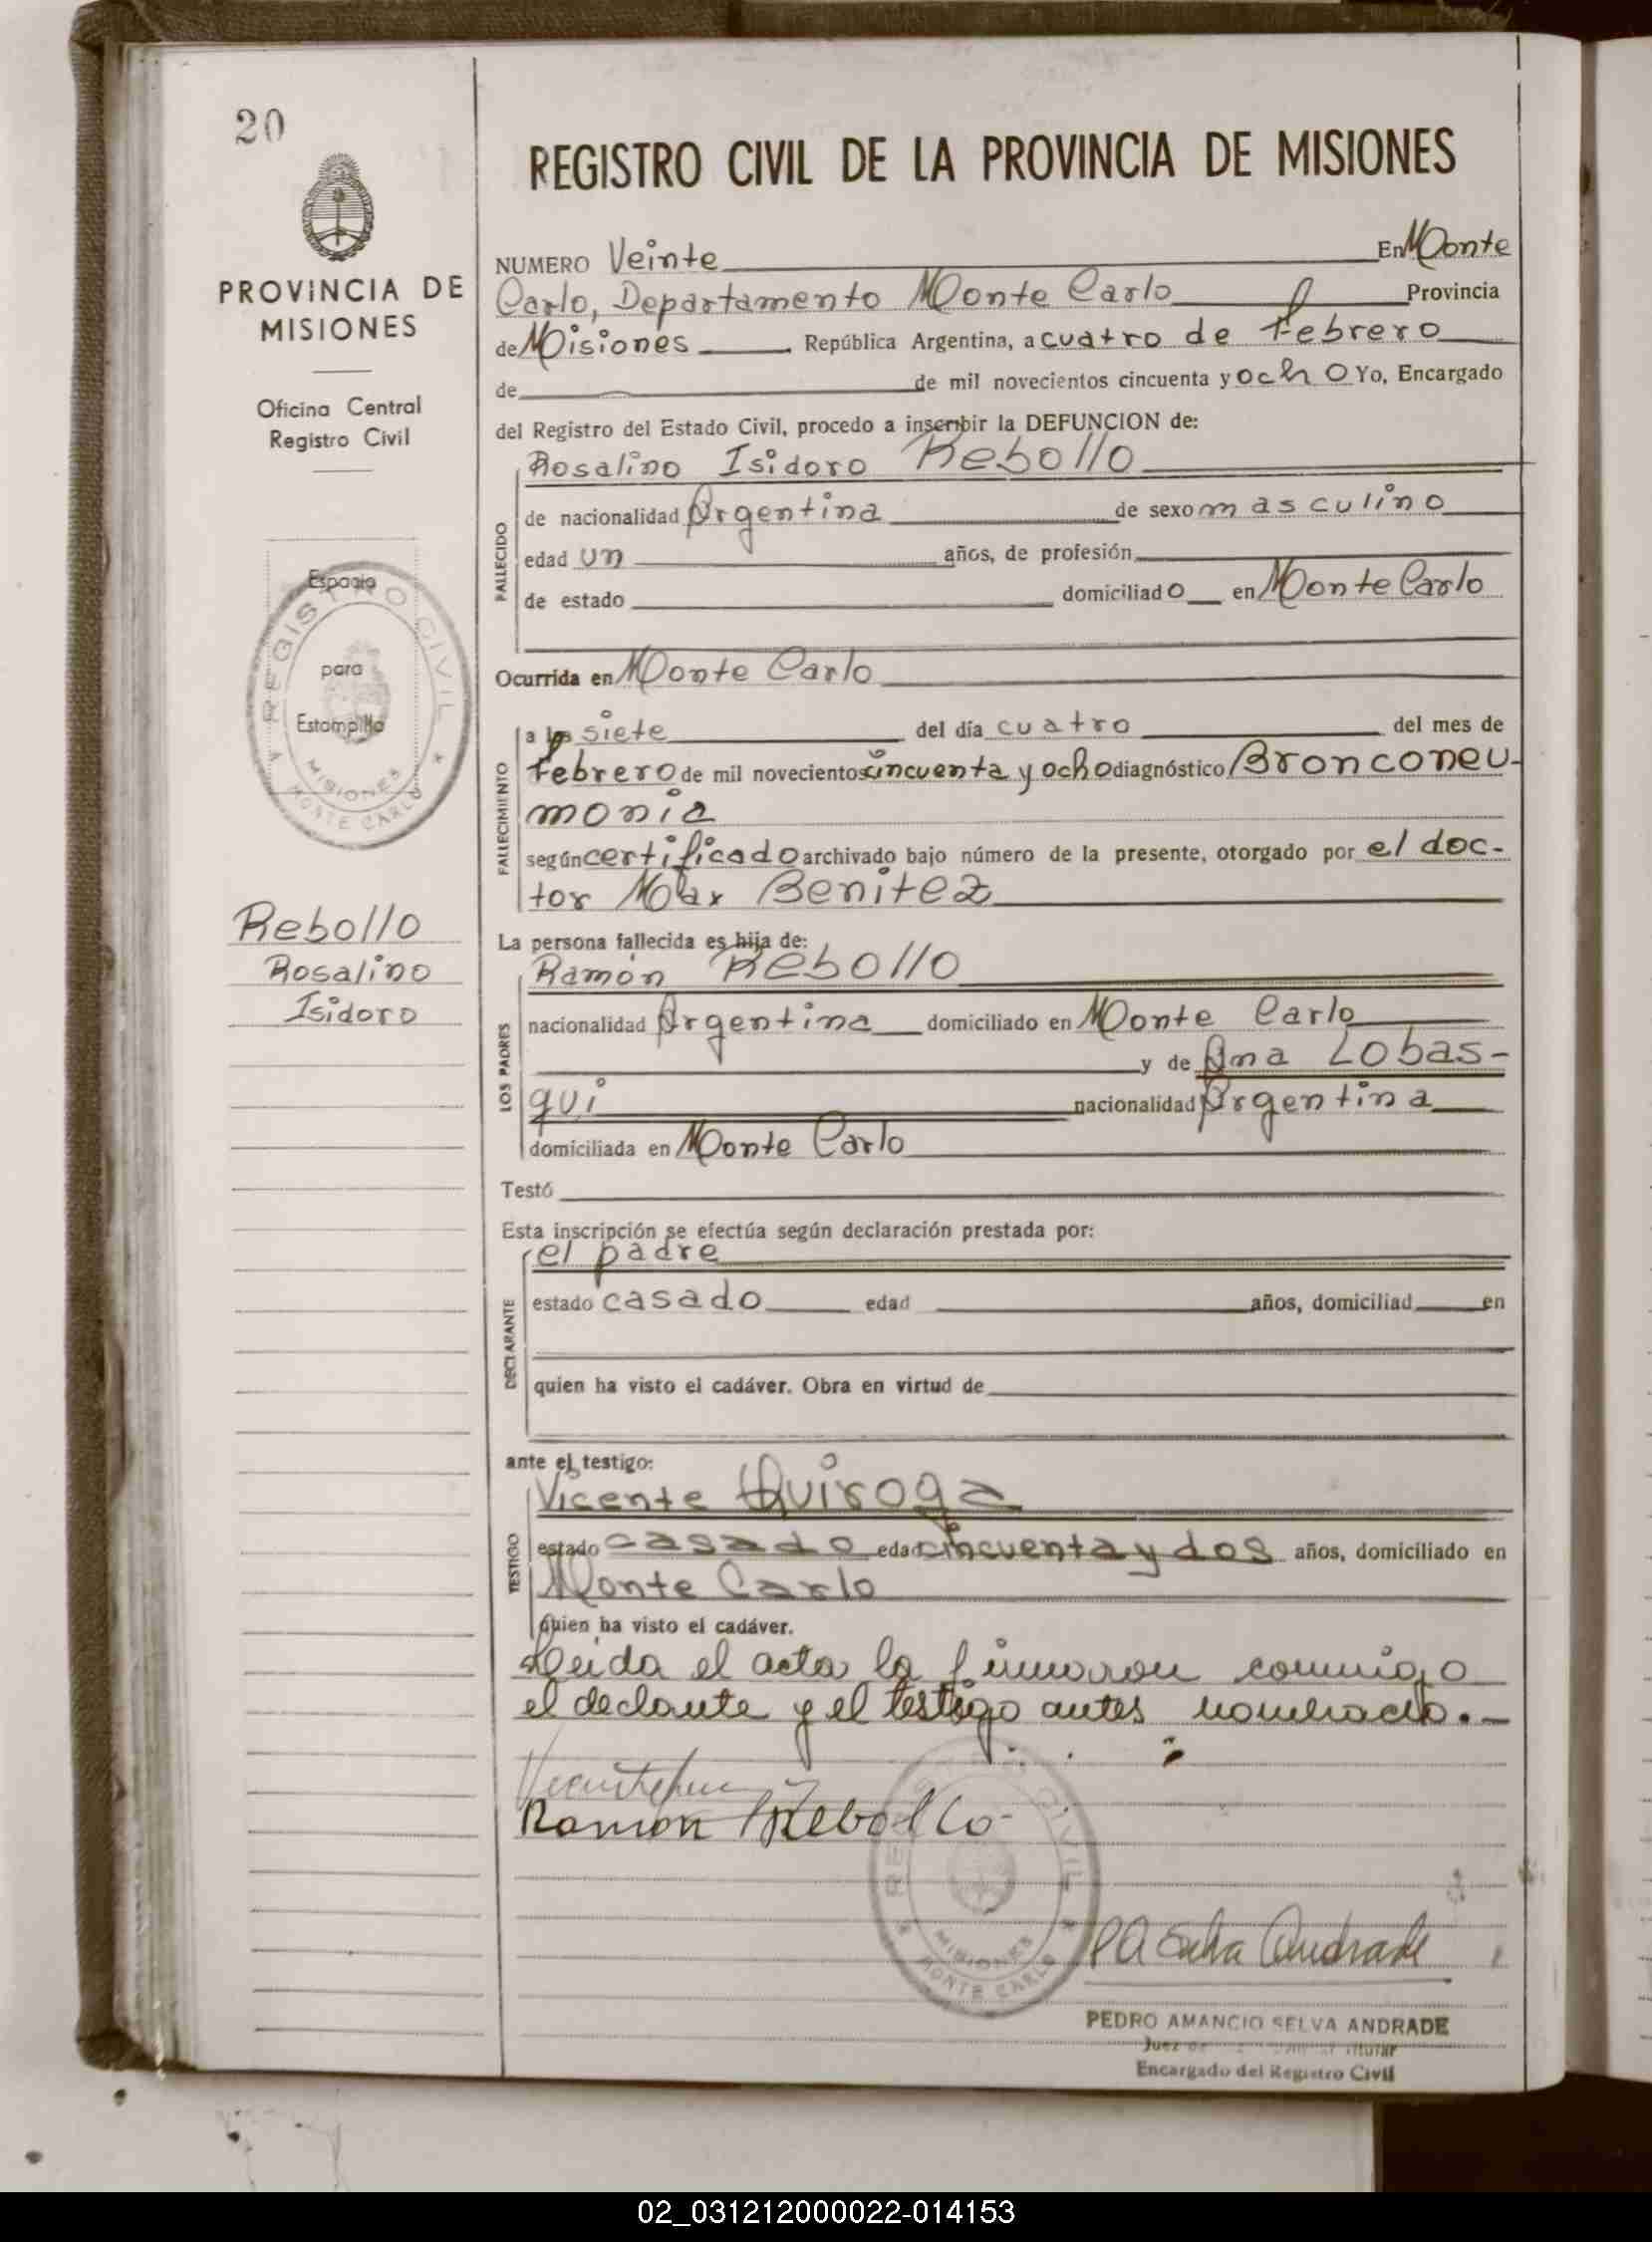 20
PROVINCIA DE
MISIONES
Oficina Central
Registro Civil
Espacio
para
Estampilla
REGISTRO CIVIL
MISIONES
MONTE CARLO
Rebollo
Rosalino
Isidoro
REGISTRO CIVIL DE LA PROVINCIA DE MISIONES
NUMERO Veinte En Monte
Carlo, Departamento Monte Carlo Provincia
de Misiones República Argentina, a cuatro de Febrero
de de mil novecientos cincuenta y ocho Yo, Encargado
del Registro del Estado Civil, procedo a inscribir la DEFUNCION de:
Rosalino Isidoro Rebollo
FALLECIDO
de nacionalidad Argentina de sexo masculino
edad un años, de profesión
de estado domiciliado en Monte Carlo
Ocurrida en Monte Carlo
FALLECIMIENTO
a las siete del día cuatro del mes de
Febrero de mil novecientos cincuenta y ocho diagnóstico Bronconeu-
monia
según certificado archivado bajo número de la presente, otorgado por el doc-
tor Max Benitez
La persona fallecida es hija de:
LOS PADRES
Ramón Rebollo
nacionalidad Argentina domiciliado en Monte Carlo
y de Ana Lobas-
qui nacionalidad Argentina
domiciliada en Monte Carlo
Testó
Esta inscripción se efectúa según declaración prestada por:
DECLARANTE
el padre
estado casado edad años, domiciliad en
quien ha visto el cadáver. Obra en virtud de
ante el testigo:
TESTIGO
Vicente Quiroga
estado casado edad cincuenta y dos años, domiciliado en
Monte Carlo
quien ha visto el cadáver.
Leida el acta la firmaron conmigo
el declante y el testigo antes nombrado.-
Ramon Rebollo
REGISTRO CIVIL
MISIONES
MONTE CARLO
PA Selva Andrade
PEDRO AMANCIO SELVA ANDRADE
Juez de
Encargado del Registro Civil
02_031212000022-014153